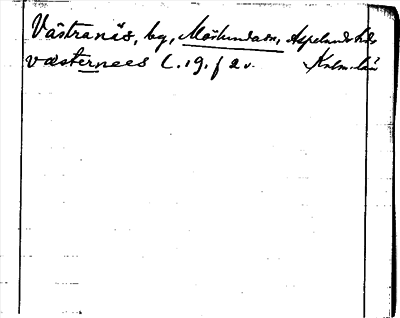 Västranäs, by, Mörlunda sn, Aspelands hd
væsternees C. 19. f 2 v. Kalm. län